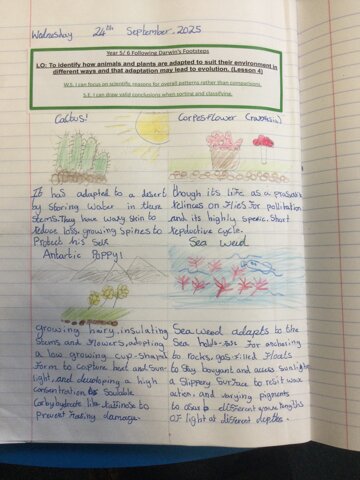 Wednesday 24th September 2025
Year 5/ 6 Following Darwin's Footsteps
LO: To identify how animals and plants are adapted to suit their environment in
different ways and that adaptation may lead to evolution. (Lesson 4)
W.S. I can focus on scientific reasons for overall patterns rather than comparisons.
S.E. I can draw valid conclusions when sorting and classifying.
Cactus!
It has adapted to a desert
by storing water in there
stems. They have waxy skin to
reduce loss, growing spines to
Protect his self
Corpes flower
though its life as a
relinces on flies for pollitation
and its highly specic, short
reproductive cycle.
Antartic Poppy!
growing hairy, insulating
stems and flowers, adopting
a low growing cup-shaped
form to capture heat and sun-
light, and developing a high
concentration of
like to
prevent damage.
Sea weed
Sea weed adapts to the
Sea holds-fasts for anchoring
to rocks, gas-filled floats
to stay bouyant and access sunlight
a slippery surface to resist wave
action, and varying pigments
to different wave lengths
of light at different depths.